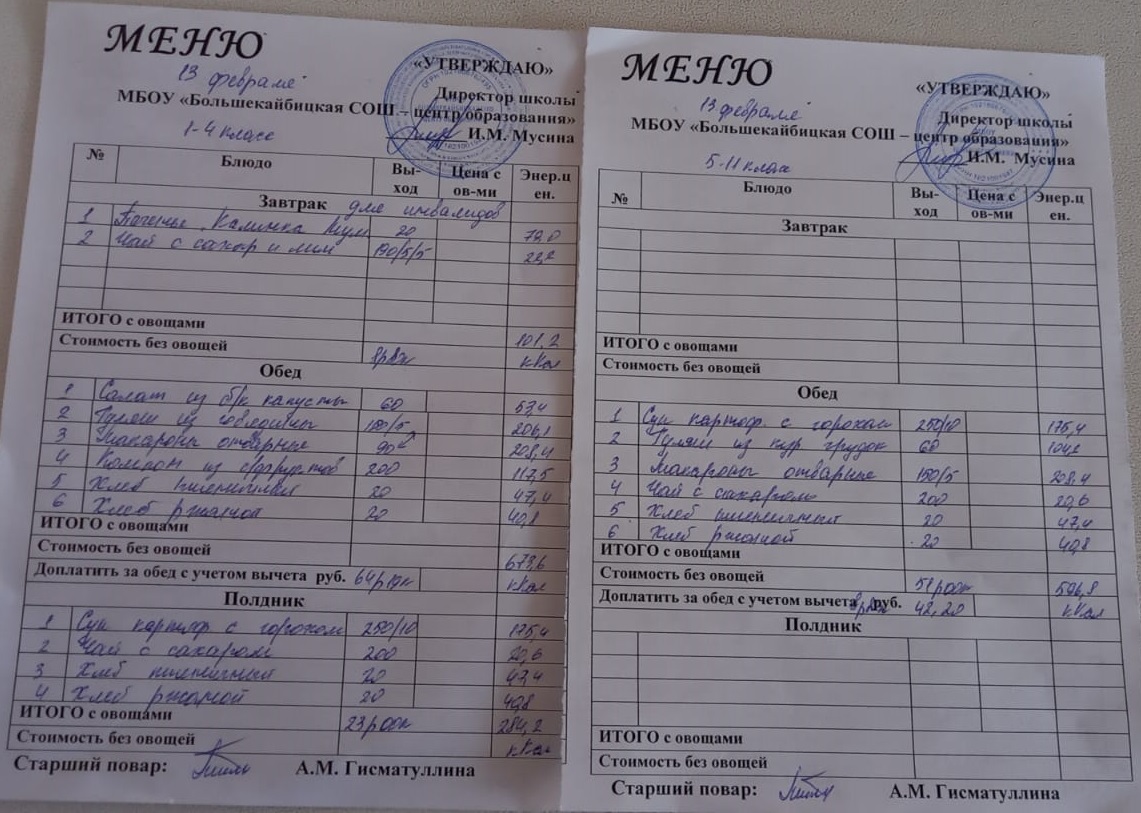 МЕНЮ
13 февраля
«УТВЕРЖДАЮ»
Директор школы
МБОУ «Большекайбицкая СОШ – центр образования»
И.М. Мусина
1-4 класс
№ Блюдо Вы-ход Цена с ов-ми Энер.ц ен.
Завтрак для инвалидов
1 Печенье Калинка 20
2 Чай с сахар и лим 190/5/5
ИТОГО с овощами 101,2
Стоимость без овощей кКал
Обед
1 Салат из б/к капусты 60 53,4
2 Гуляш из говядины 206,1
3 Макароны отварные 208,4
4 Компот из с/фруктов 200 117,5
5 Хлеб пшеничный 20 47,4
6 Хлеб ржаной 20 40,8
ИТОГО с овощами
Стоимость без овощей 673,6
Доплатить за обед с учетом вычета руб. кКал
Полдник
1 Суп картоф. с горохом 250/10 175,4
2 Чай с сахаром 200 20,6
3 Хлеб пшеничный 20 47,4
4 Хлеб ржаной 20 40,8
ИТОГО с овощами 23р00к 284,2
Стоимость без овощей кКал
Старший повар: А.М. Гисматуллина
МЕНЮ
13 февраля
«УТВЕРЖДАЮ»
Директор школы
МБОУ «Большекайбицкая СОШ – центр образования»
И.М. Мусина
5-11 класс
№ Блюдо Вы-ход Цена с ов-ми Энер.ц ен.
Завтрак
ИТОГО с овощами
Стоимость без овощей
Обед
1 Суп картоф. с горохом 250/10 175,4
2 Гуляш из кур грудок 60
3 Макароны отварные 150/5 208,4
4 Чай с сахаром 200 20,6
5 Хлеб пшеничный 20 47,4
6 Хлеб ржаной 20 40,8
ИТОГО с овощами
Стоимость без овощей 51р00к 596,8
Доплатить за обед с учетом вычета руб. 42,20 кКал
Полдник
ИТОГО с овощами
Стоимость без овощей
Старший повар: А.М. Гисматуллина